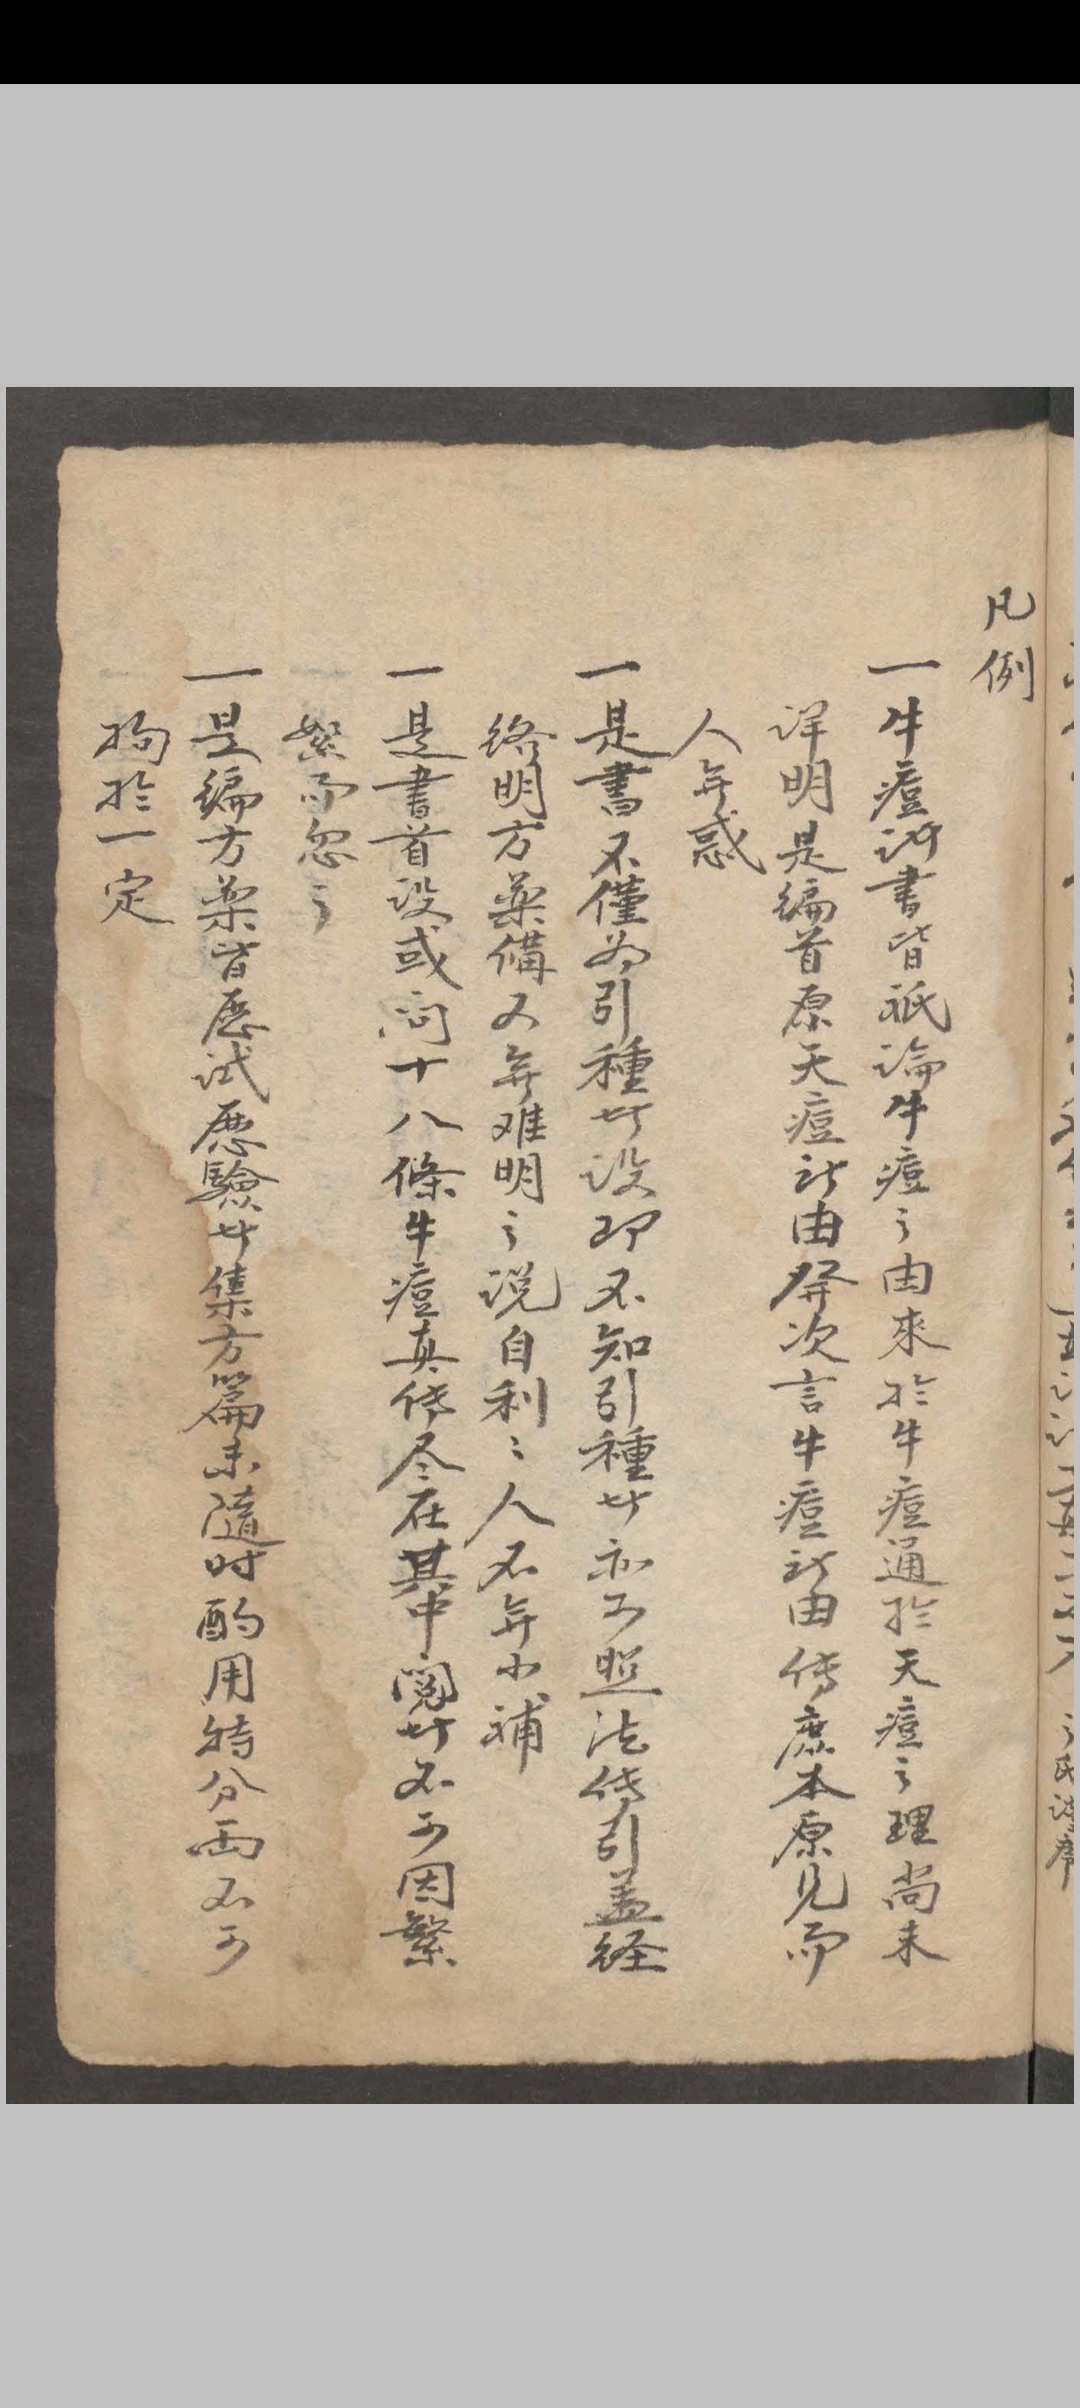 凡例
一牛痘诸書皆祇論牛痘之由來於牛痘通於天痘之理尚未
详明是編首原天痘所由發次言牛痘所由传庶本原見而
人无惑
一是書不僅为引種者设即不知引種者亦可照法传引盖経
络明方藥備又无难明之说自利々人不无小補
一是書首设或问十八條牛痘真传尽在其中阅者不可因繁
絮而忽之
一是編方藥皆歷试歷驗者集方篇末隨时酌用特分兩不可
拘於一定